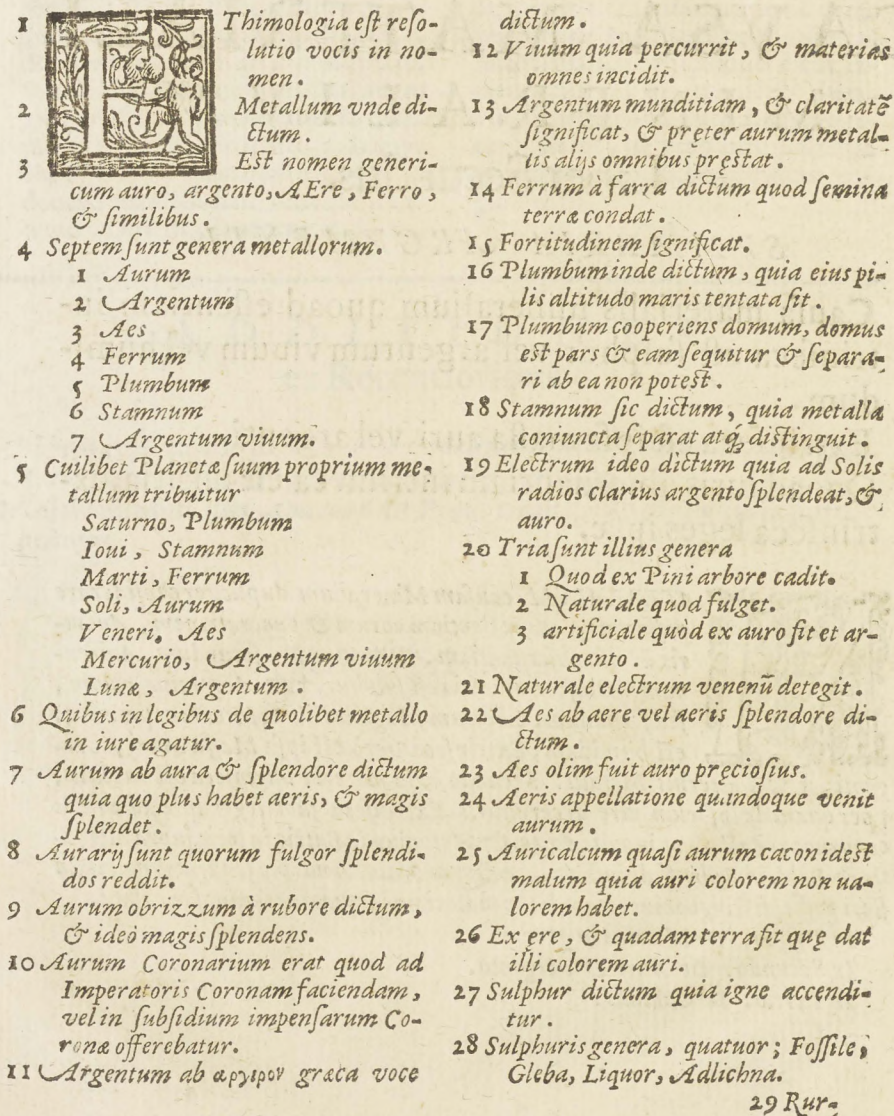 1 EThimologia est reso-
lutio vocis in no-
men.
2 Metallum vnde di-
ctum.
3 Est nomen generi-
cum auro, argento, AEre, Ferro,
& similibus.
4 Septem sunt genera metallorum.
1 Aurum
2 Argentum
3 Aes
4 Ferrum
5 Plumbum
6 Stamnum
7 Argentum viuum.
5 Cuilibet Planetæ suum proprium me-
tallum tribuitur
Saturno, Plumbum
Ioui, Stamnum
Marti, Ferrum
Soli, Aurum
Veneri. Aes
Mercurio, Argentum viuum
Lunæ, Argentum.
6 Quibus in legibus de quolibet metallo
in iure agatur.
7 Aurum ab aura & splendore dictum
quia quo plus habet aeris, & magis
splendet.
8 Aurarij sunt quorum fulgor splendi-
dos reddit.
9 Aurum obrizzum à rubore dictum,
& ideò magis splendens.
10 Aurum Coronarium erat quod ad
Imperatoris Coronam faciendam,
vel in subsidium impensarum Co-
ronæ offerebatur.
11 Argentum ab αργιρον græca voce
dictum.
12 Viuum quia percurrit, & materias
omnes incidit.
13 Argentum munditiam, & claritatẽ
significat, & pręter aurum metal-
lis alijs omnibus pręstat.
14 Ferrum à farra dictum quod semina
terræ condat.
15 Fortitudinem significat.
16 Plumbum inde dictum, quia eius pi-
lis altitudo maris tentata sit.
17 Plumbum cooperiens domum, domus
est pars & eam sequitur & separa-
ri ab ea non potest.
18 Stamnum sic dictum, quia metalla
coniuncta separat atq́; distinguit.
19 Electrum ideo dictum quia ad Solis
radios clarius argento splendeat, &
auro.
20 Tria sunt illius genera
1 Quod ex Pini arbore cadit.
2 Naturale quod fulget.
3 artificiale quòd ex auro fit et ar-
gento.
21 Naturale electrum venenũ detegit.
22 Aes ab aere vel aeris splendore di-
ctum.
23 Aes olim fuit auro pręciosius.
24 Aeris appellatione quandoque venit
aurum.
25 Auricalcum quasi aurum cacon idest
malum quia auri colorem non ua-
lorem habet.
26 Ex ęre, & quadam terra fit quę dat
illi colorem auri.
27 Sulphur dictum quia igne accendi-
tur.
28 Sulphuris genera, quatuor; Fossile,
Gleba, Liquor, Adlichna.
29 Rur-